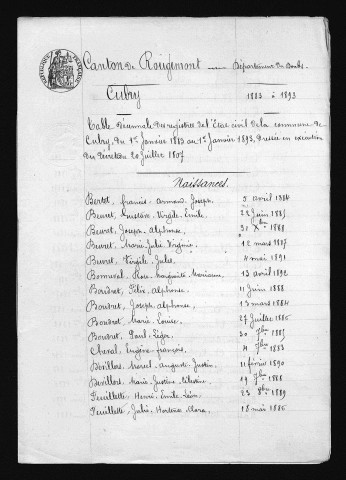 Canton de Rougemont — Département du Doubs.
Cubry 1883 à 1893
Table décennale des registres de l'Etat civil de la commune de
Cubry, du 1er Janvier 1883 au 1er Janvier 1893, dressée en exécution
du décret du 20 Juillet 1807
Naissances.
Bertot, francis-Armand-Joseph. 5 avril 1884
Beuret, Gustave-Virgile-Emile. 22 Juin 1885
Beuret, Joseph-Alphonse. Xbre 1888
Beuret, Marie-Julie-Virginie. 12 mars 1887
Beuret, Virgile-Jules. 4 mai 1891
Bonneval, Rose-Marguerite-Marianne. 13 avril 1892
Félix-Alphonse. 11 Juin 1888
Boutret, Joseph-Alphonse. 13 mars 1884
Boutret, Marie-Louise. 27 Juillet 1886
Boutret, Paul-Léger. 30 7bre 1885
Eugène-françois. 4 1883
Marcel-Auguste-Justin. 21 février 1890
Marie-Justine-Célestine. 19 7bre 1888
feuillette, Henri-Emile-Léon. 23 8bre 1889
feuillette, Julie-Hortense-Clara. 18 mai 1886